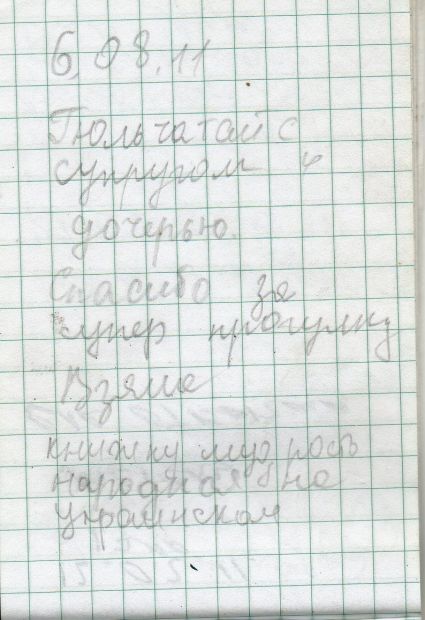 6.08.11
Гюльчатай с
супругом и
дочерью.
Спасибо за
супер прогулку
Взяла
книжку мудрость
народная на
украинском